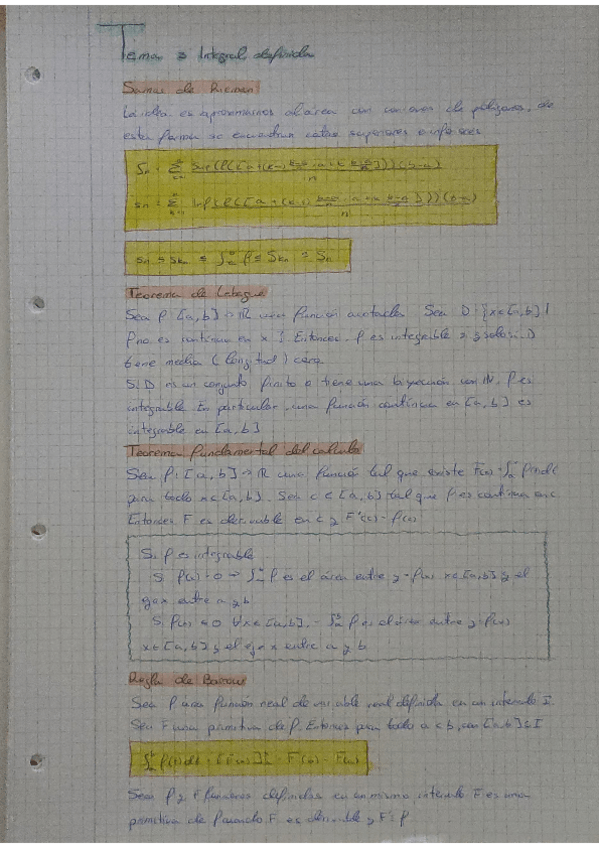 Tema 3 Integral definida
Sumas de Riemann
La idea es aproximarnos al área con uniones de polígonos, de
esta forma se encuentran cotas superiores e inferiores
Sn = Σ Sup(f([a+(k-1) b-a/n, a+k b-a/n]))(b-a)/n
sn = Σ Inf(f([a+(k-1) b-a/n, a+k b-a/n]))(b-a)/n
sn ≤ skn ≤ ∫ f ≤ Skn ≤ Sn
Teorema de Lebesgue
Sea f: [a,b] → ℝ una función acotada. Sea D = {x∈[a,b] |
f no es continua en x}. Entonces, f es integrable si y solo si D
tiene medida (longitud) cero.
Si D es un conjunto finito o tiene una biyección con ℕ, f es
integrable. En particular, una función continua en [a,b] es
integrable en [a,b]
Teorema fundamental del calculo
Sea f: [a,b] → ℝ una función tal que existe F(x) = ∫ f(t)dt
para todo x∈[a,b]. Sea c∈[a,b] tal que f es continua en c.
Entonces F es derivable en c y F'(c) = f(c)
Si f es integrable
Si f(x) ≥ 0 → ∫ f es el área entre y=f(x) x∈[a,b] y el
eje x entre a y b
Si f(x) ≤ 0 ∀x∈[a,b], -∫ f es el área entre y=f(x)
x∈[a,b] y el eje x entre a y b
Regla de Barrow
Sea f una función real de variable real definida en un intervalo I.
Sea F una primitiva de f. Entonces para todo a<b, con [a,b]⊂I
∫ f(t)dt = [F(x)] = F(b) - F(a)
Sean f y F funciones definidas en un mismo intervalo. F es una
primitiva de f cuando F es derivable y F'=f